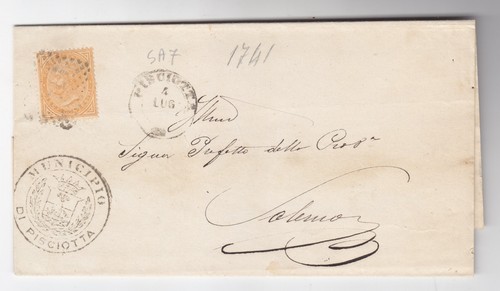 SA7 1741
PISCIOTTA
4
LUG
Illmo
Sigr Prefetto della Prova
Salerno
MUNICIPIO
DI PISCIOTTA